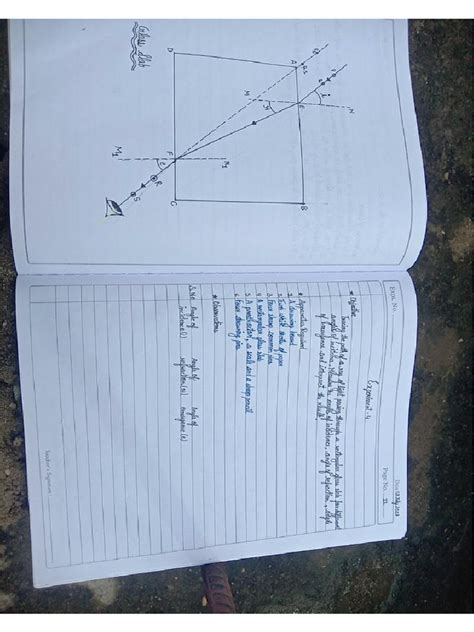 Glass slab
D
A
B
C
E
F
N
M
M1
N1
i
r
e
P
Q
R
S
EXPL. No.
Date
Page No. 21
Experiment-4
* Objective
Tracing the path of a ray of light passing through a rectangular glass slab for different
angles of incidence. Measure the angle of incidence, angle of refraction, angle
of emergence and interpret the result.
* Apparatus Required
1. A drawing board
2. Two white sheets of paper
3. Four sharp common pins
4. A rectangular glass slab
5. A protractor, a scale and a sharp pencil
6. Four drawing pins
* Observations
S.No Angle of incidence (i) Angle of refraction (r) Angle of emergence (e)
Teacher's Signature :